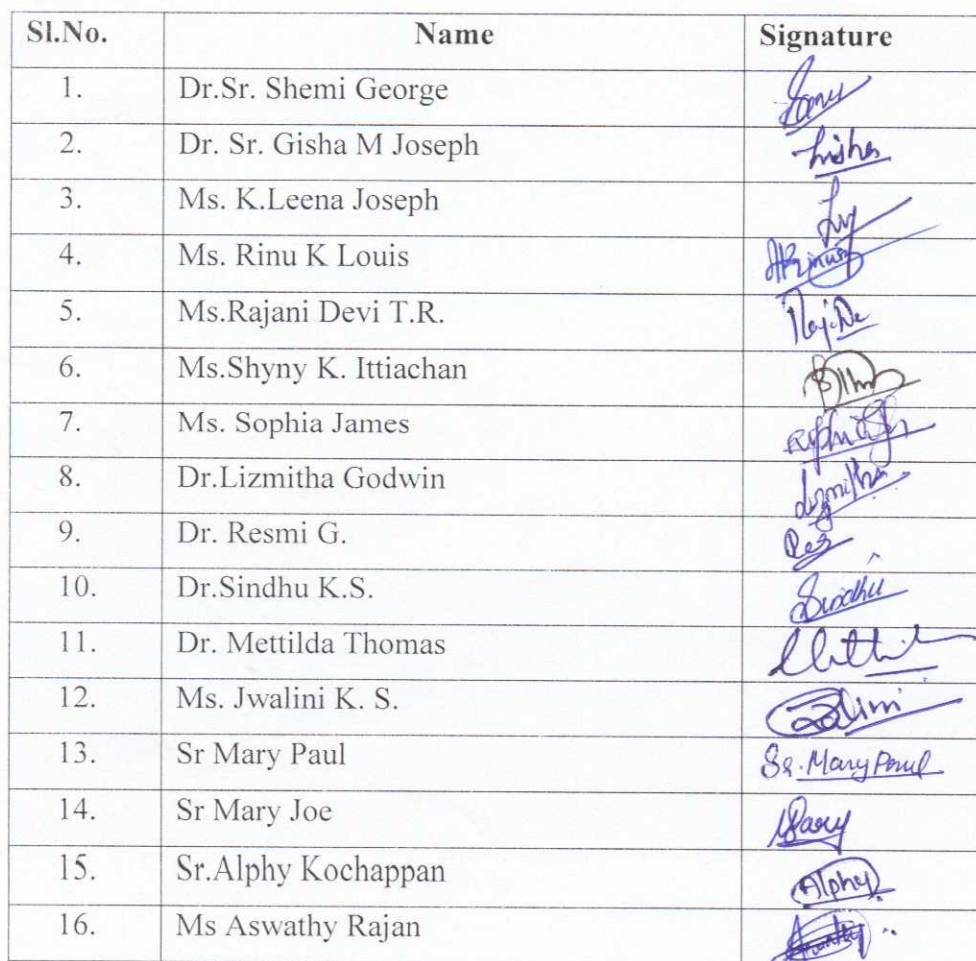 Sl.No. Name Signature
1. Dr.Sr. Shemi George
2. Dr. Sr. Gisha M Joseph
3. Ms. K.Leena Joseph
4. Ms. Rinu K Louis
5. Ms.Rajani Devi T.R.
6. Ms.Shyny K. Ittiachan
7. Ms. Sophia James
8. Dr.Lizmitha Godwin Lizmitha
9. Dr. Resmi G.
10. Dr.Sindhu K.S. Sindhu
11. Dr. Mettilda Thomas
12. Ms. Jwalini K. S.
13. Sr Mary Paul Sr. Mary Paul
14. Sr Mary Joe Mary
15. Sr.Alphy Kochappan Alphy
16. Ms Aswathy Rajan